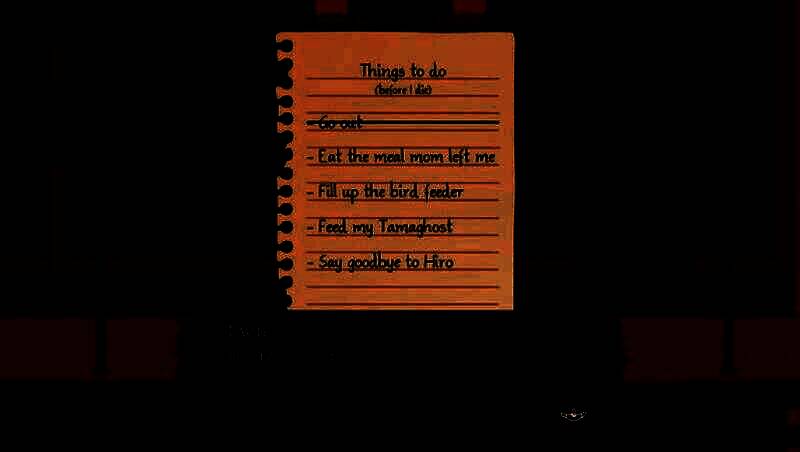 Things to do
(before I die)
- Go out
- Eat the meal mom left me
- Fill up the bird feeder
- Feed my Tamaghost
- Say goodbye to Hiro